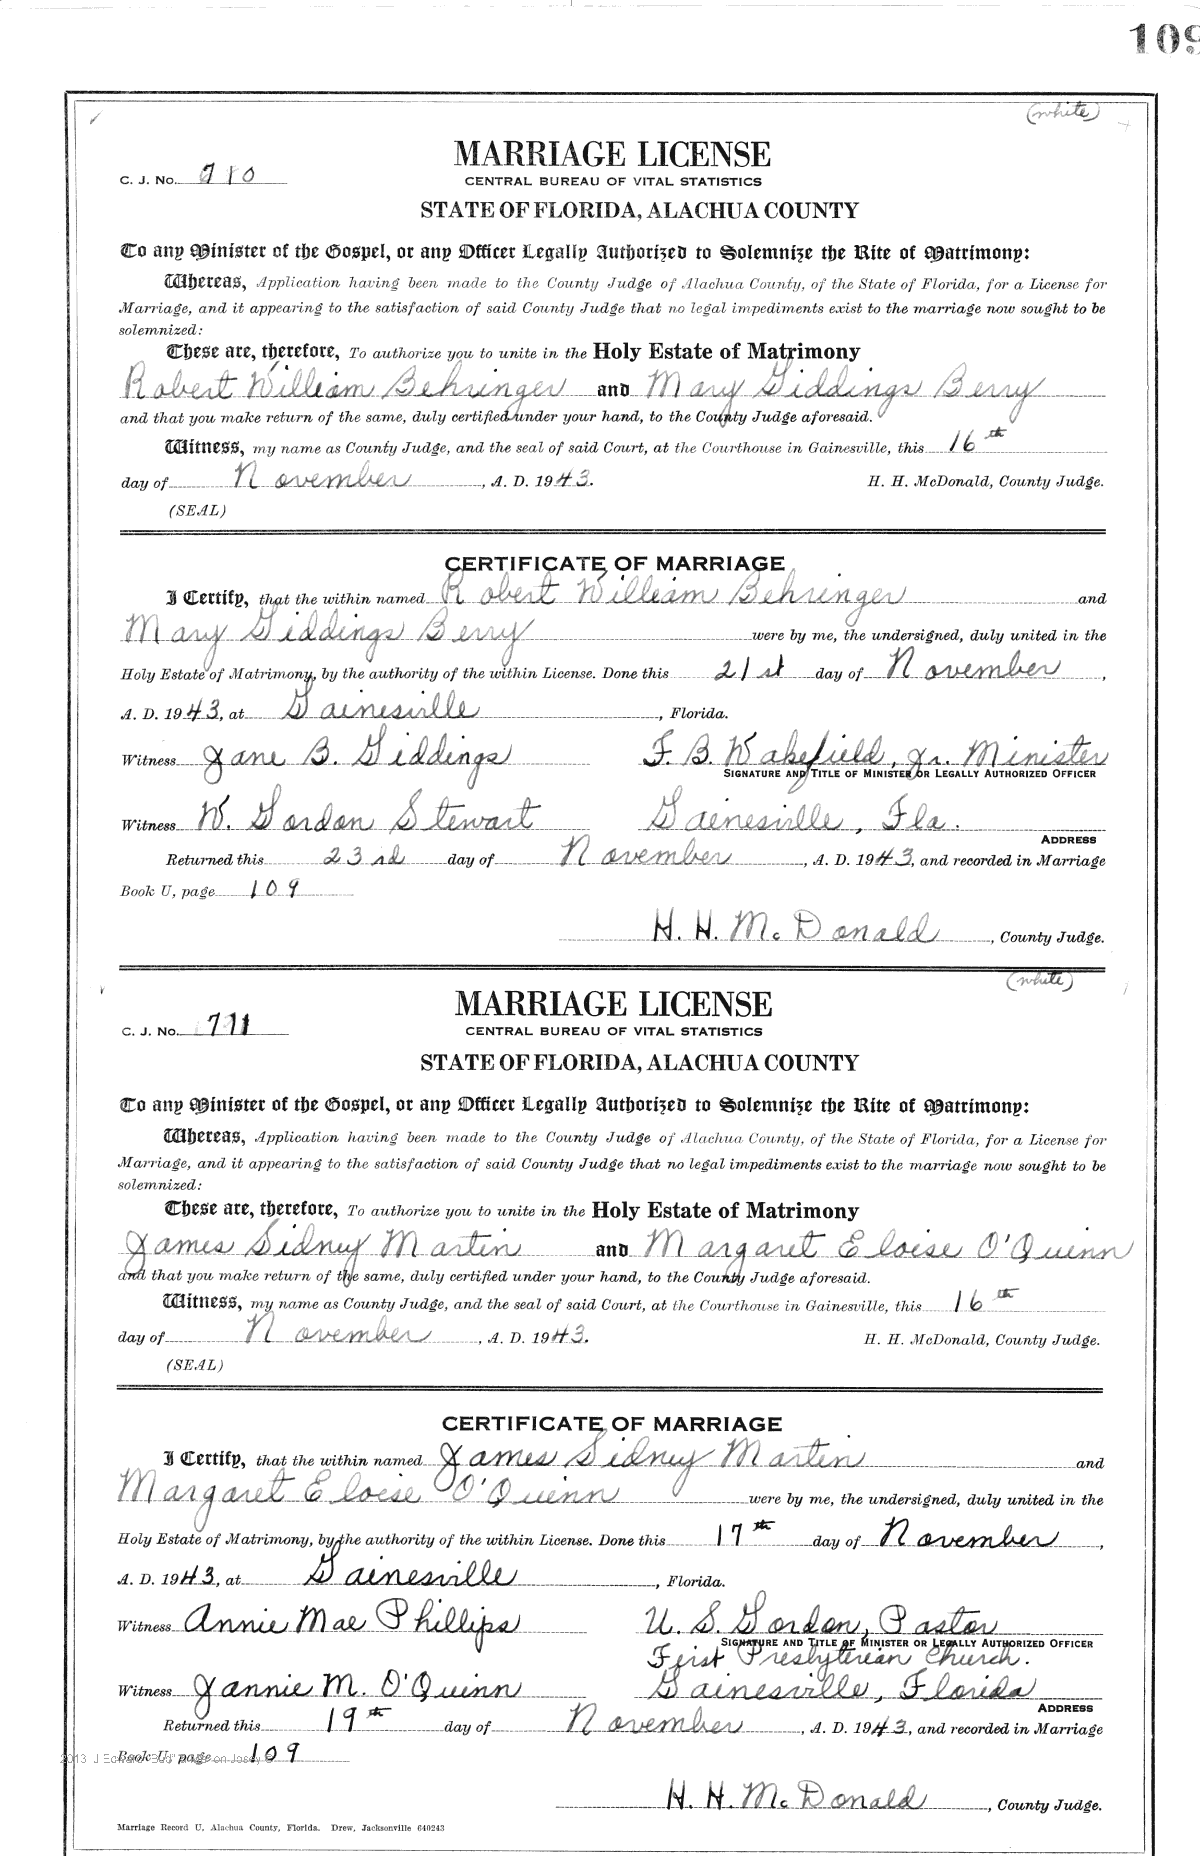 109
(white)
MARRIAGE LICENSE
C. J. No. 710
CENTRAL BUREAU OF VITAL STATISTICS
STATE OF FLORIDA, ALACHUA COUNTY
To any Minister of the Gospel, or any Officer Legally Authorized to Solemnize the Rite of Matrimony:
Whereas, Application having been made to the County Judge of Alachua County, of the State of Florida, for a License for
Marriage, and it appearing to the satisfaction of said County Judge that no legal impediments exist to the marriage now sought to be
solemnized:
These are, therefore, To authorize you to unite in the Holy Estate of Matrimony
Robert William Behringer and Mary Giddings Berry
and that you make return of the same, duly certified under your hand, to the County Judge aforesaid.
Witness, my name as County Judge, and the seal of said Court, at the Courthouse in Gainesville, this 16th
day of November, A. D. 1943. H. H. McDonald, County Judge.
(SEAL)
CERTIFICATE OF MARRIAGE
I Certify, that the within named Robert William Behringer and
Mary Giddings Berry were by me, the undersigned, duly united in the
Holy Estate of Matrimony, by the authority of the within License. Done this 21st day of November,
A. D. 1943, at Gainesville, Florida.
Witness Jane B. Giddings F. B. Wakefield, Jr. Minister
SIGNATURE AND TITLE OF MINISTER OR LEGALLY AUTHORIZED OFFICER
Witness W. Gordon Stewart Gainesville, Fla.
ADDRESS
Returned this 23rd day of November, A. D. 1943, and recorded in Marriage
Book U, page 109
H. H. McDonald, County Judge.
(white)
MARRIAGE LICENSE
C. J. No. 711
CENTRAL BUREAU OF VITAL STATISTICS
STATE OF FLORIDA, ALACHUA COUNTY
To any Minister of the Gospel, or any Officer Legally Authorized to Solemnize the Rite of Matrimony:
Whereas, Application having been made to the County Judge of Alachua County, of the State of Florida, for a License for
Marriage, and it appearing to the satisfaction of said County Judge that no legal impediments exist to the marriage now sought to be
solemnized:
These are, therefore, To authorize you to unite in the Holy Estate of Matrimony
James Sidney Martin and Margaret Eloise O'Quinn
and that you make return of the same, duly certified under your hand, to the County Judge aforesaid.
Witness, my name as County Judge, and the seal of said Court, at the Courthouse in Gainesville, this 16th
day of November, A. D. 1943. H. H. McDonald, County Judge.
(SEAL)
CERTIFICATE OF MARRIAGE
I Certify, that the within named James Sidney Martin and
Margaret Eloise O'Quinn were by me, the undersigned, duly united in the
Holy Estate of Matrimony, by the authority of the within License. Done this 17th day of November,
A. D. 1943, at Gainesville, Florida.
Witness Annie Mae Phillips U. S. Gordon, Pastor
SIGNATURE AND TITLE OF MINISTER OR LEGALLY AUTHORIZED OFFICER
First Presbyterian Church.
Witness Jannie M. O'Quinn Gainesville, Florida
ADDRESS
Returned this 19th day of November, A. D. 1943, and recorded in Marriage
Book U, page 109
H. H. McDonald, County Judge.
Marriage Record U, Alachua County, Florida. Drew, Jacksonville 640243